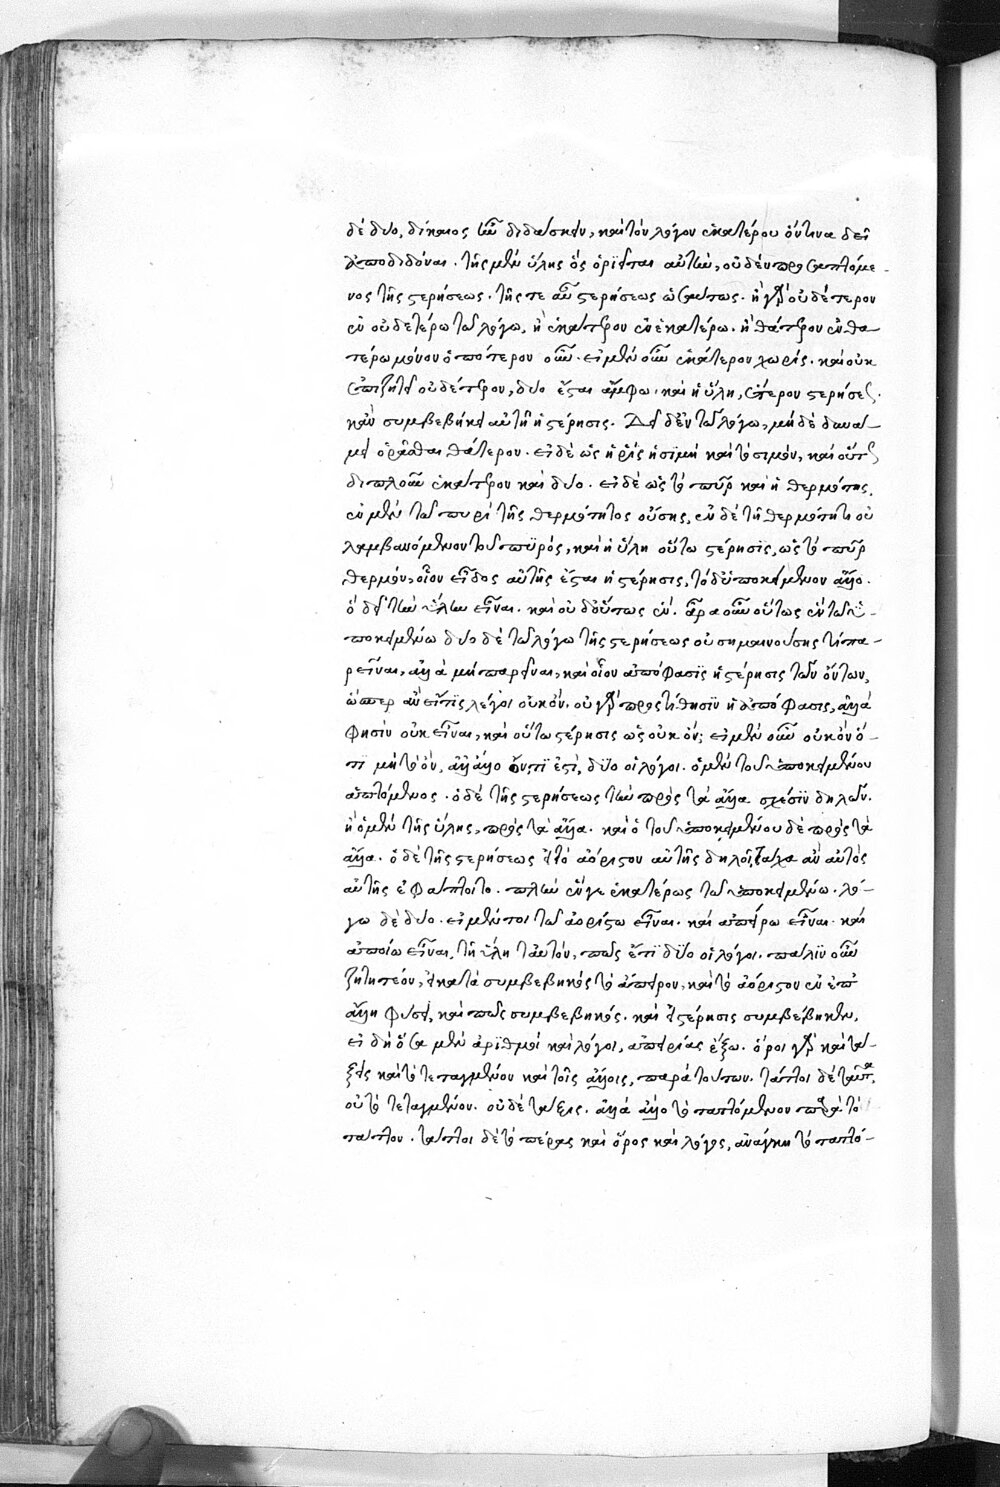 δὲ δύο, δίκαιος ἦν διδάσκειν, καὶ τὸν λόγον ἑκατέρου ὅντινα δεῖ
ἀποδιδόναι. τῆς μὲν ὕλης ὃς ὁρίζεται αὐτὴν, οὐδὲν προσαπτόμε-
νος τῆς στερήσεως. τῆς τε αὖ στερήσεως ὡσαύτως. ἢ γὰρ οὐδέτερον
ἐν οὐδετέρω τῶ λόγω, ἢ ἑκάτερον ἐν ἑκατέρω. ἢ θάτερον ἐν θα-
τέρω μόνον ὁπότερον οὖν. εἰ μὲν οὖν ἑκάτερον χωρὶς. καὶ οὐκ
ἐπιζητεῖ οὐδέτερον, δύο ἔσται ἄμφω. καὶ ἡ ὕλη, ἕτερον στερήσεως.
κἂν συμβεβήκει αὐτῆ ἡ στέρησις. δεῖ δ' ἐν τῶ λόγω, μηδὲ δυνάμει
ὁρᾶσθαι θάτερον. εἰ δὲ ὡς ἡ ῥὶς ἡ σιμὴ καὶ τὸ σιμόν, καὶ οὕτως
διπλοῦν ἑκάτερον καὶ δύο. εἰ δὲ ὡς τὸ πῦρ καὶ ἡ θερμότης,
ἐν μὲν τῶ πυρὶ τῆς θερμότητος οὔσης, ἐν δὲ τῆ θερμότητι οὐ
λαμβανόμενον τοῦ πυρός, καὶ ἡ ὕλη οὕτω στέρησις, ὡς τὸ πῦρ
θερμόν, οἷον εἶδος αὐτῆς ἔσται ἡ στέρησις, τὸ δ' ὑποκείμενον ἄλλο.
ὃ δεῖ τὴν ὕλην εἶναι. καὶ οὐδ' οὕτως ἕν. ἆρα οὖν οὕτως ἓν τῶ ὑ-
ποκειμένω δύο δὲ τῶ λόγω τῆς στερήσεως οὐ σημαινούσης τι πα-
ρεῖναι, ἀλλὰ μὴ παρεῖναι, καὶ οἷον ἀπόφασις ἡ στέρησις τῶν ὄντων,
ὥσπερ ἂν εἴ τις λέγοι οὐκ ὄν. οὐ γὰρ προστίθησιν ἡ ἀπόφασις, ἀλλά
φησιν οὐκ εἶναι, καὶ οὕτω στέρησις ὡς οὐκ ὄν; εἰ μὲν οὖν οὐκ ὂν ὅ-
τι μὴ τὸ ὄν, ἀλλ' ἄλλο ὄν τι ἐστὶ, δύο οἱ λόγοι. ὁ μὲν τοῦ ὑποκειμένου
ἁπτόμενος. ὁ δὲ τῆς στερήσεως τὴν πρὸς τὰ ἄλλα σχέσιν δηλῶν.
ἢ ὁ μὲν τῆς ὕλης, πρὸς τὰ ἄλλα. καὶ ὁ τοῦ ὑποκειμένου δὲ πρὸς τὰ
ἄλλα. ὁ δὲ τῆς στερήσεως εἰ τὸ ἀόριστον αὐτῆς δηλοῖ, τάχα ἂν αὐτὸς
αὐτῆς ἐφάπτοιτο. πλὴν ἕν γε ἑκατέρως τῶ ὑποκειμένω. λό-
γω δὲ δύο. εἰ μέντοι τῶ ἀορίστω εἶναι. καὶ ἀπείρω εἶναι. καὶ
ἀποίω εἶναι, τῆ ὕλη ταὐτόν, πῶς ἔτι δύο οἱ λόγοι. πάλιν οὖν
ζητητέον, εἰ κατὰ συμβεβηκὸς τὸ ἄπειρον, καὶ τὸ ἀόριστον ἐν ἐπ'
ἄλλη φύσει, καὶ πῶς συμβεβηκός. καὶ εἰ στέρησις συμβέβηκεν,
εἰ δὴ ὅσα μὲν ἀριθμοὶ καὶ λόγοι, ἀπειρίας ἔξω. ὅροι γὰρ καὶ τά-
ξεις καὶ τὸ τεταγμένον καὶ τοῖς ἄλλοις, παρὰ τούτων. τάττοι δὲ ταῦτα,
οὐ τὸ τεταγμένον. οὐδὲ τάξις. ἀλλὰ ἄλλο τὸ ταττόμενον παρὰ τὸ
τάττον. τάττοι δὲ τὸ πέρας καὶ ὅρος καὶ λόγος, ἀνάγκη τὸ ταττό-